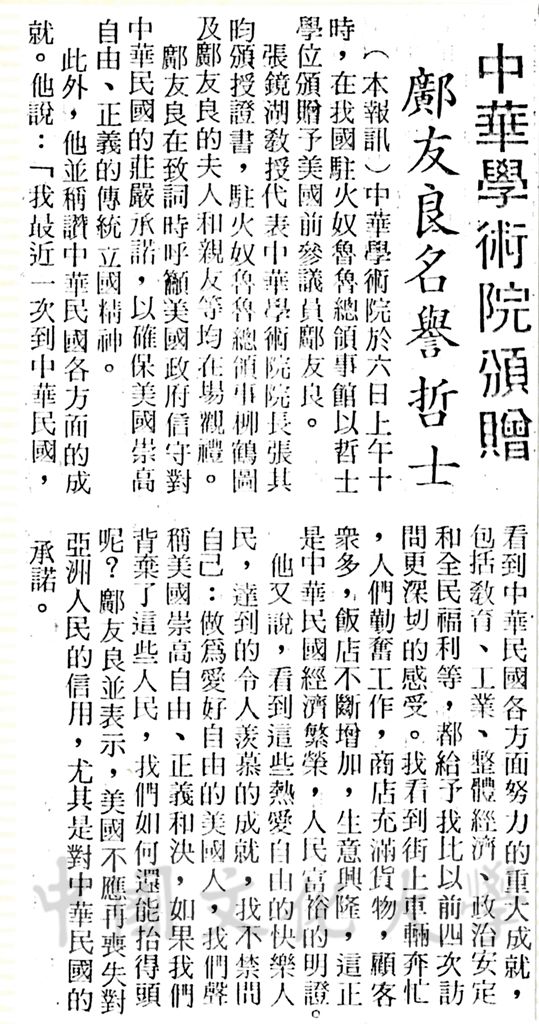 中華學術院頒贈
鄺友良名譽哲士
（本報訊）中華學術院於六日上午十
時，在我國駐火奴魯魯總領事館以哲士
學位頒贈予美國前參議員鄺友良。
張鏡湖教授代表中華學術院院長張其
昀頒授證書，駐火奴魯魯總領事柳鶴圖
及鄺友良的夫人和親友等均在場觀禮。
鄺友良在致詞時呼籲美國政府信守對
中華民國的莊嚴承諾，以確保美國崇高
自由、正義的傳統立國精神。
此外，他並稱讚中華民國各方面的成
就。他說：「我最近一次到中華民國，
看到中華民國各方面努力的重大成就，
包括教育、工業、整體經濟、政治安定
和全民福利等，都給予我比以前四次訪
問更深切的感受。我看到街上車輛奔忙
，人們勤奮工作，商店充滿貨物，顧客
衆多，飯店不斷增加，生意興隆，這正
是中華民國經濟繁榮，人民富裕的明證。
他又說，看到這些熱愛自由的快樂人
民，達到的令人羨慕的成就，我不禁問
自己：做爲愛好自由的美國人，我們聲
稱美國崇高自由、正義和決，如果我們
背棄了這些人民，我們如何還能抬得頭
呢？鄺友良並表示，美國不應再喪失對
亞洲人民的信用，尤其是對中華民國的
承諾。
中國文化大學